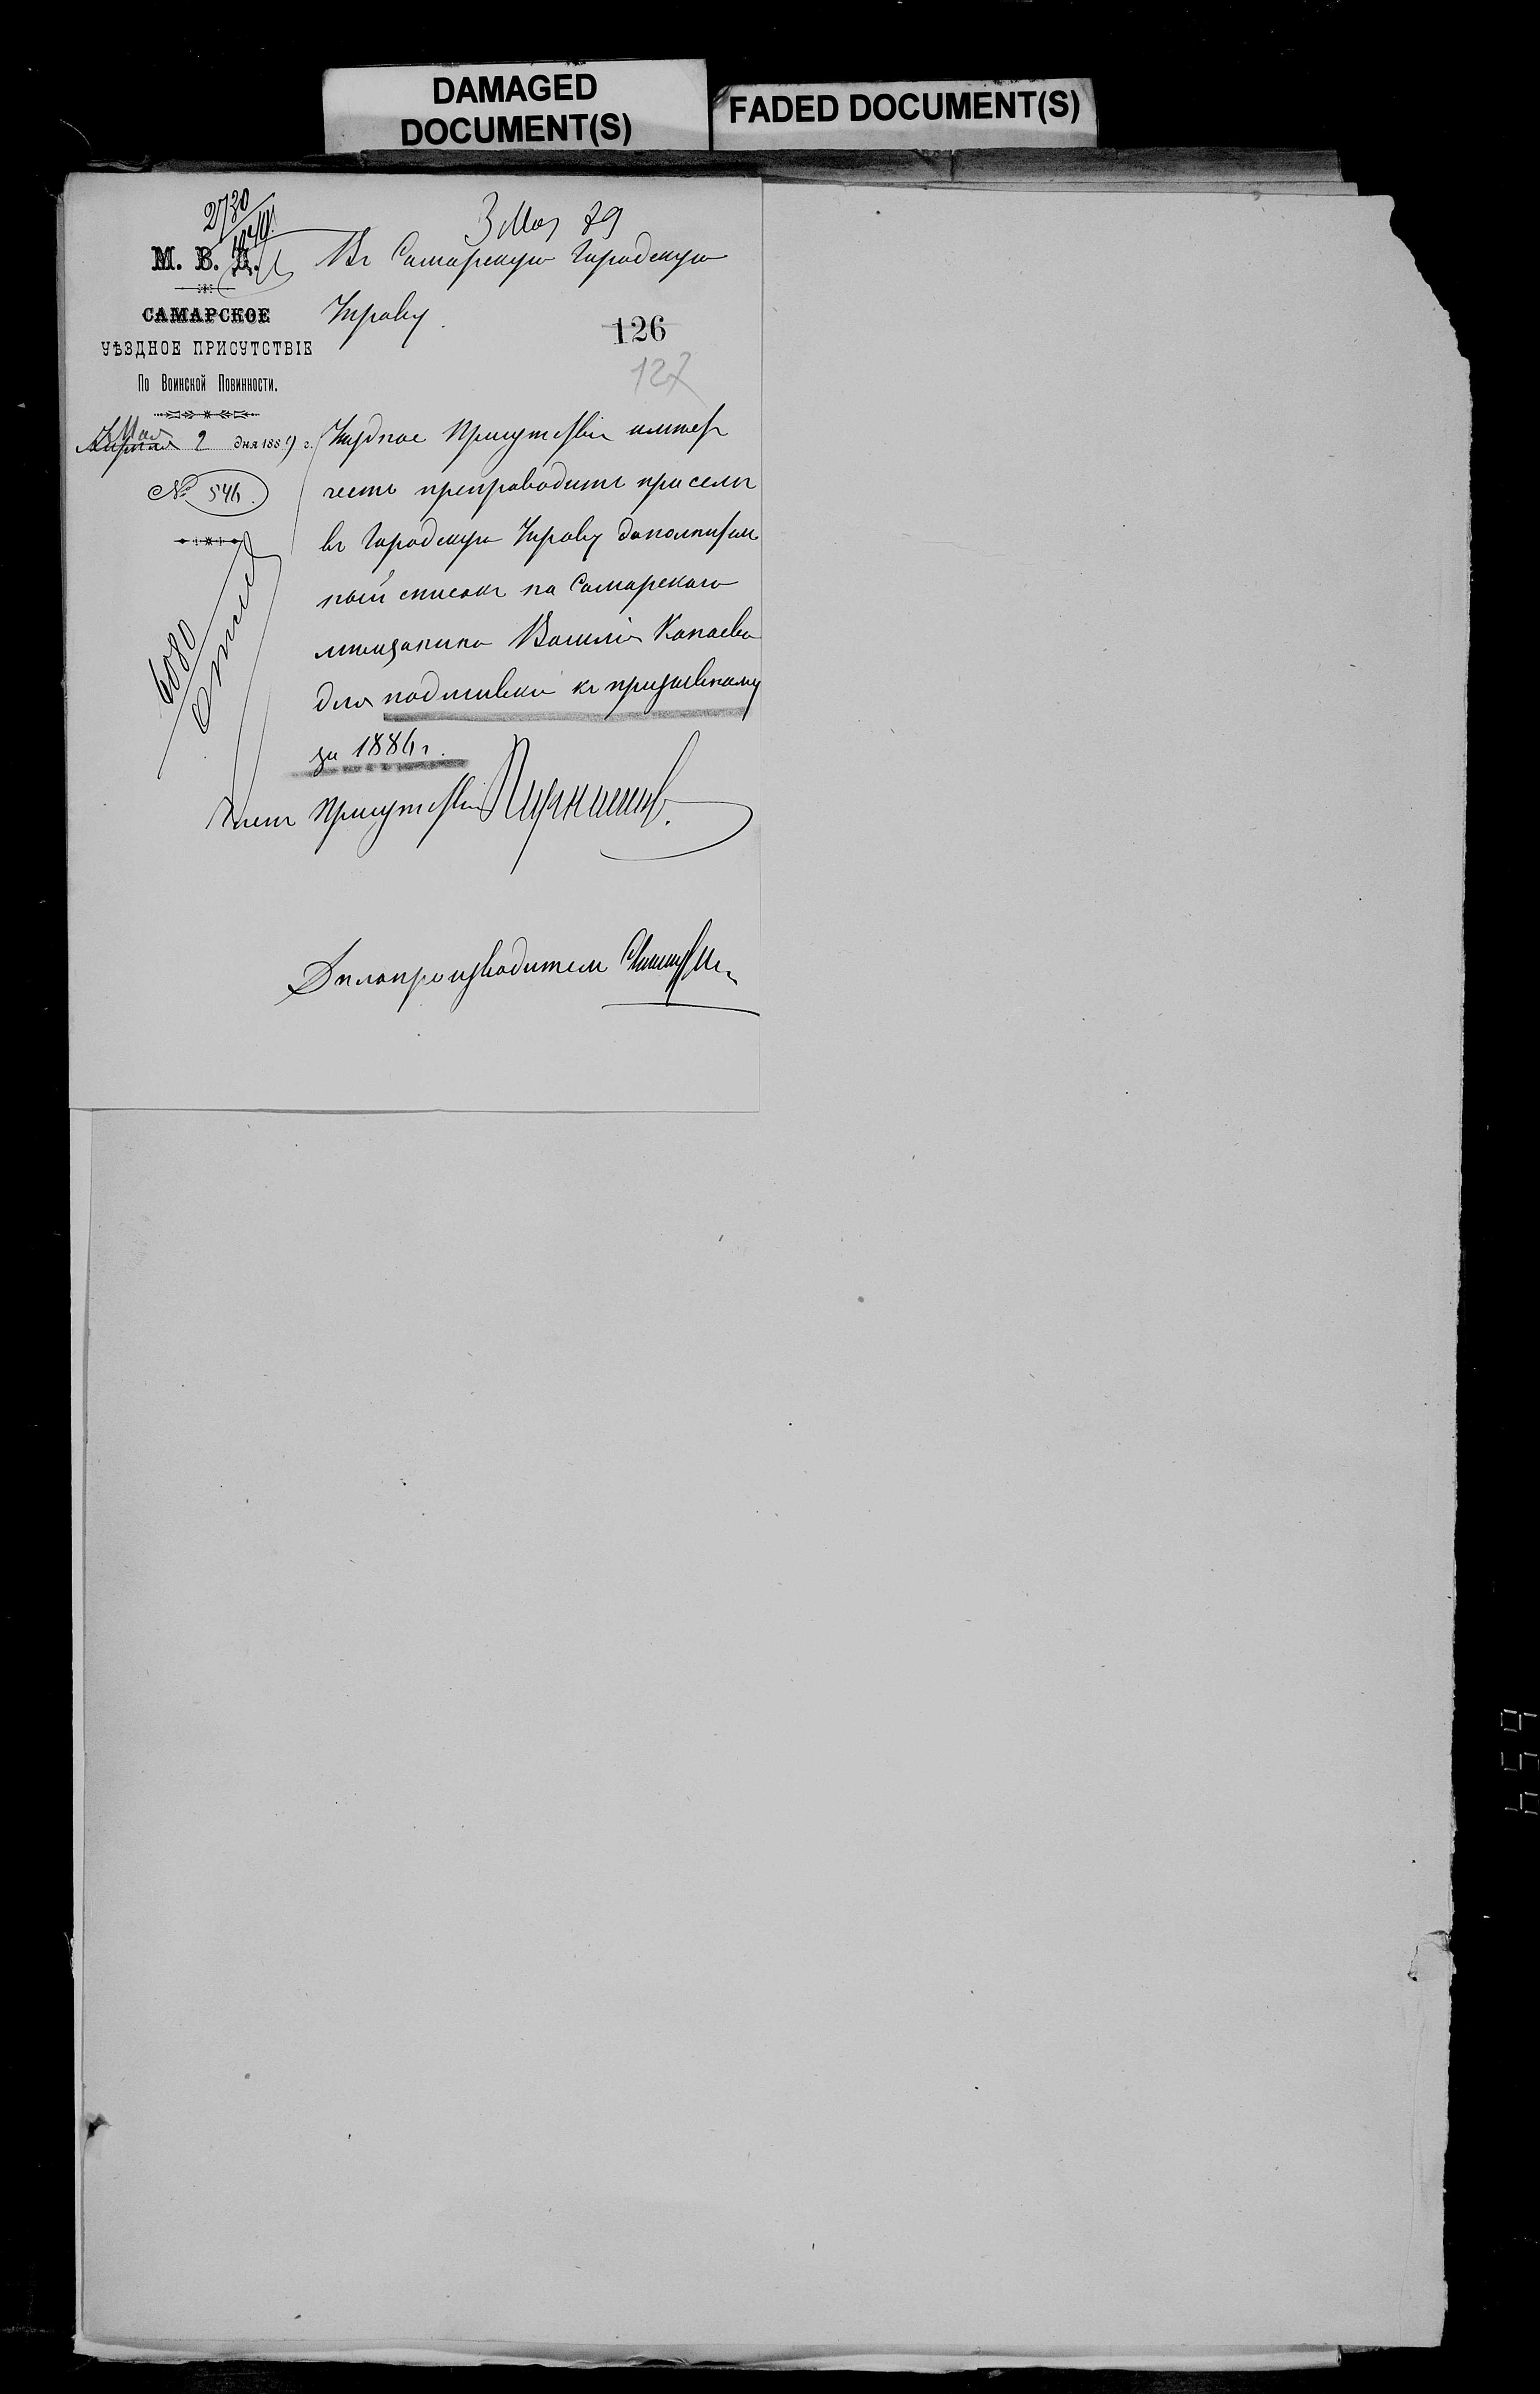 DAMAGED
DOCUMENT(S)
FADED DOCUMENT(S)
2730
3 Мая 89
М. В. Д.
Въ Самарскую Городскую
Управу.
САМАРСКОЕ
УѢЗДНОЕ ПРИСУТСТВІЕ
По Воинской Повинности.
126
127
Мая 2 дня 1889 г.
№ 546.
Уѣздное Присутствіе имѣетъ
честь препроводить при семъ
въ Городскую Управу дополнитель
ный списокъ на Самарскаго
мѣщанина Василія Канаева
для подшивки къ призывному
за 1886 г.
6080
Членъ Присутствія
Дѣлопроизводитель
654